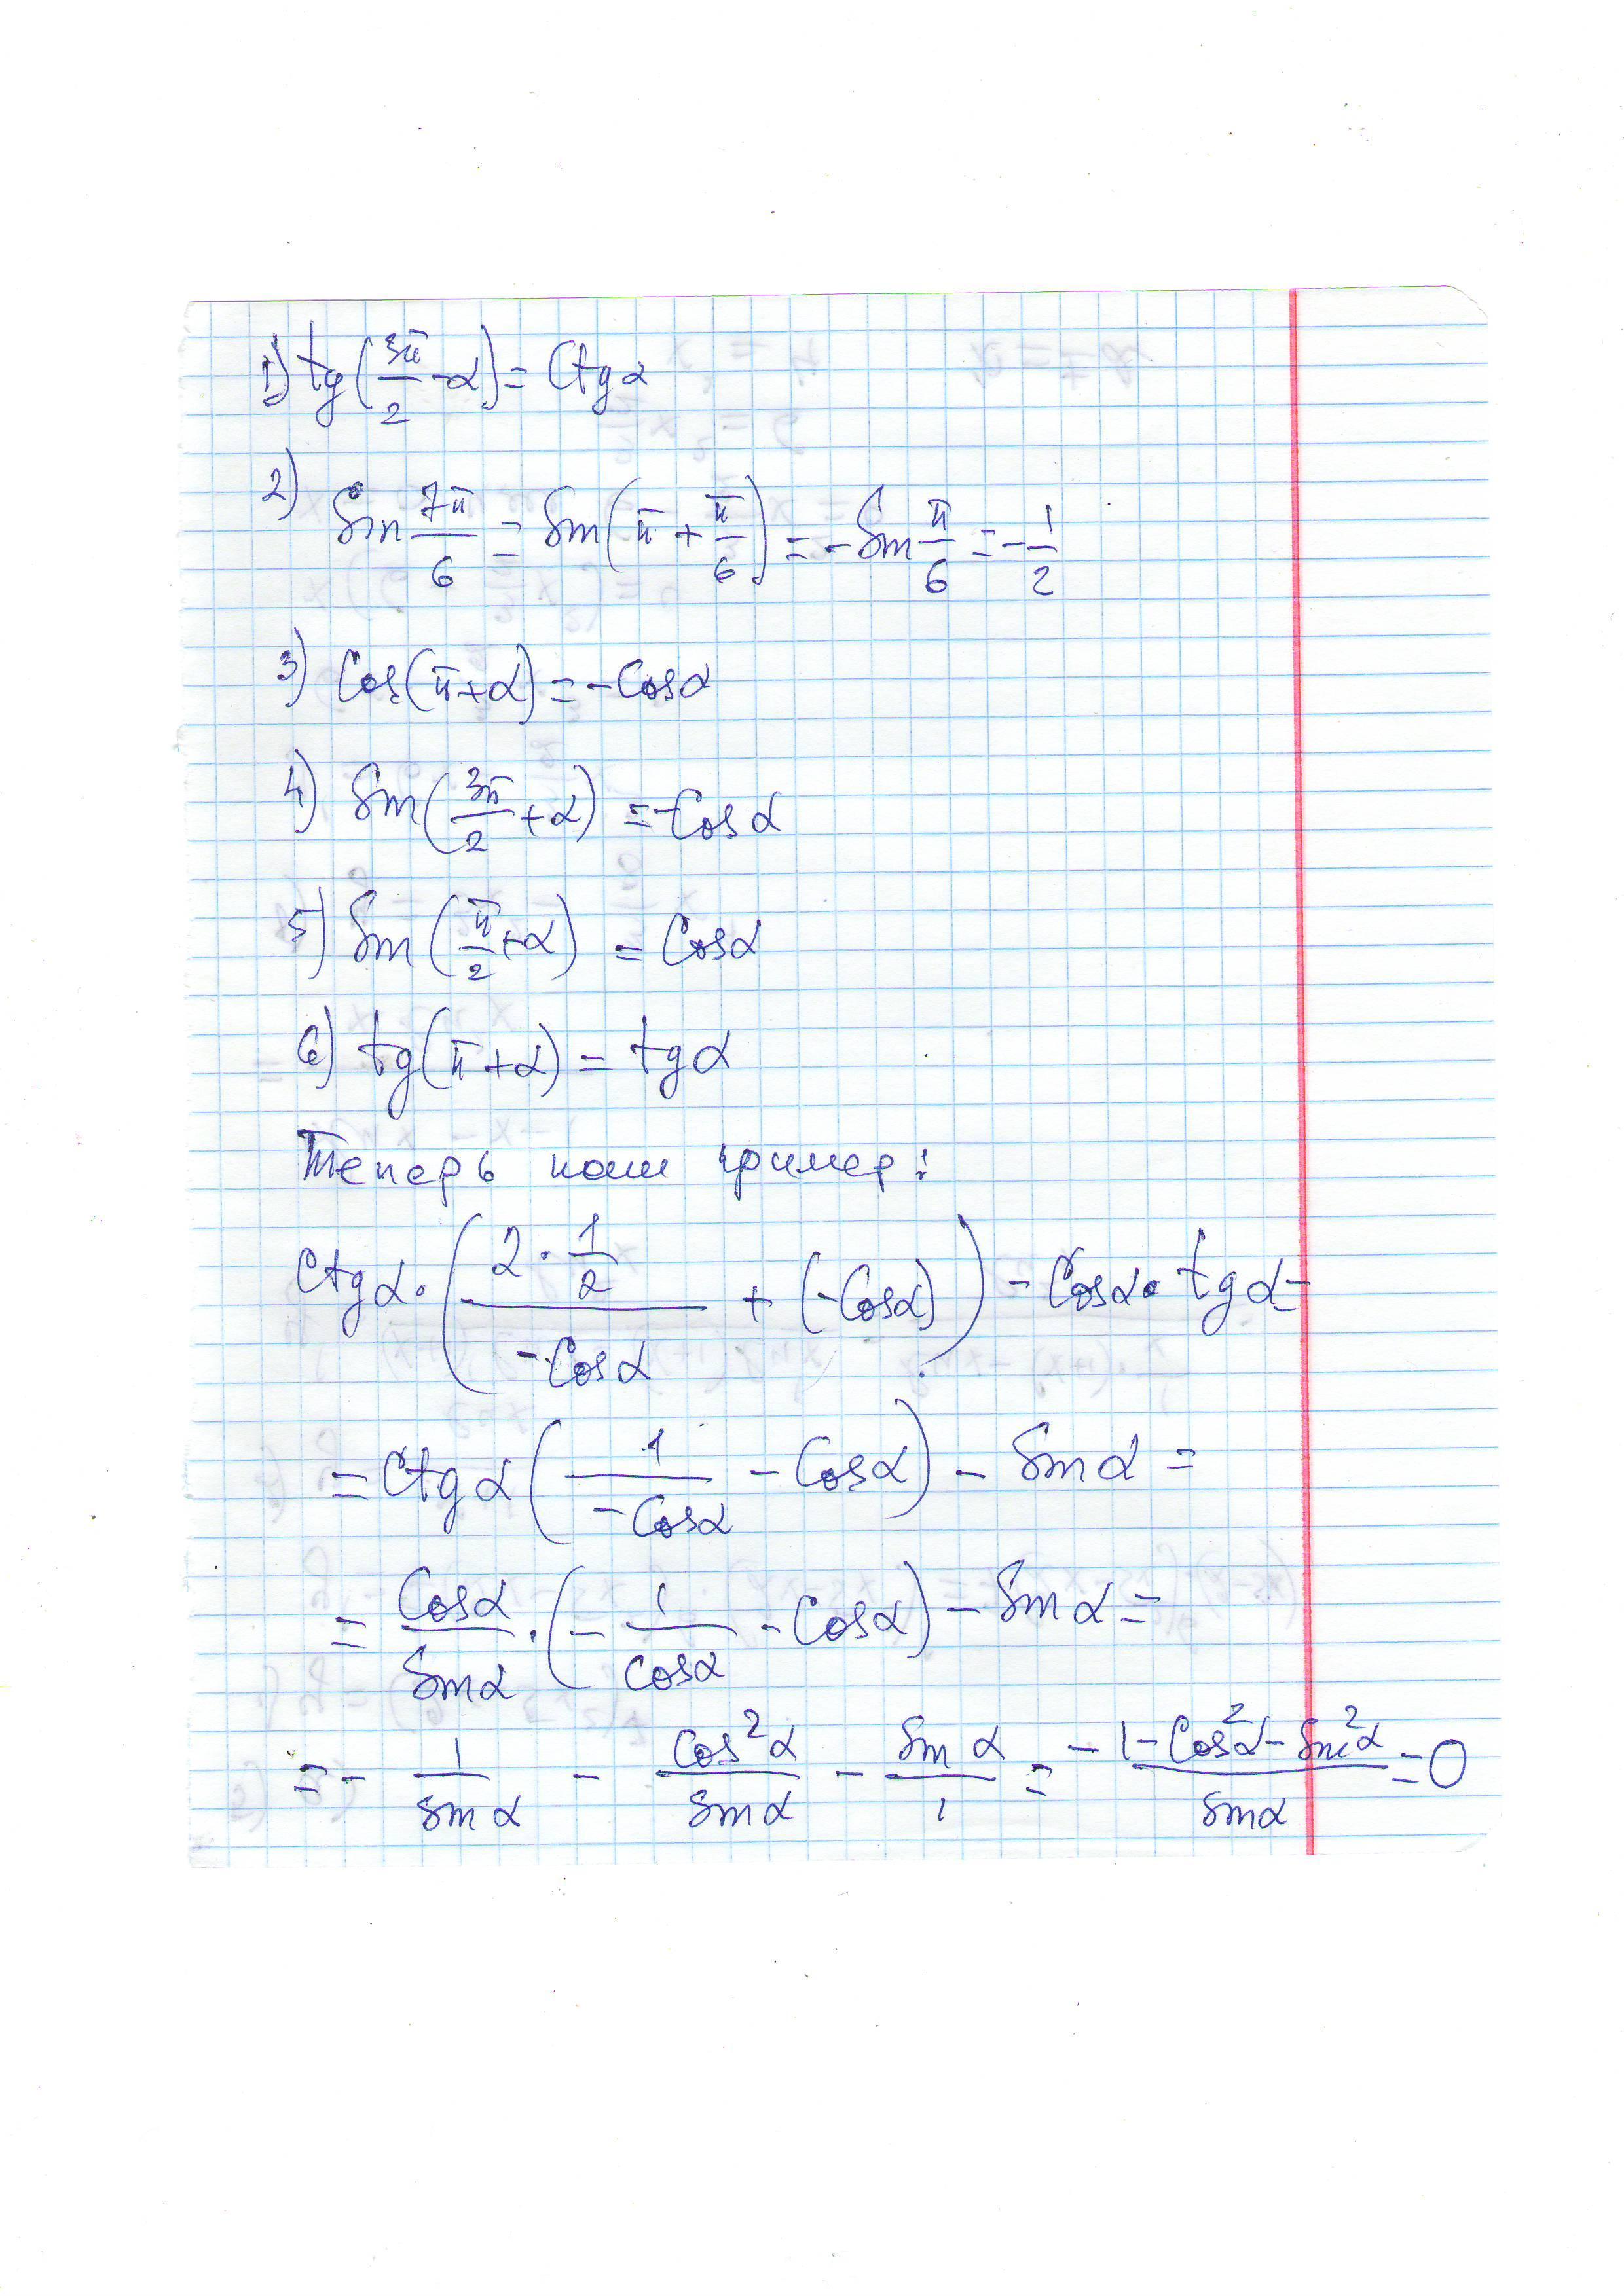 1) tg(3π/2 - α) = Ctg α
2) Sin 7π/6 = Sin(π + π/6) = - Sin π/6 = - 1/2
3) Cos(π + α) = - Cos α
4) Sin(3π/2 + α) = - Cos α
5) Sin(π/2 + α) = Cos α
6) tg(π + α) = tg α
Теперь наш пример:
Ctg α · (2 · 1/2 / -Cos α + (-Cos α)) - Cos α · tg α =
= Ctg α (1 / -Cos α - Cos α) - Sin α =
= Cos α / Sin α · (- 1 / Cos α - Cos α) - Sin α =
= - 1 / Sin α - Cos² α / Sin α - Sin α / 1 = - 1 - Cos² α - Sin² α / Sin α = 0